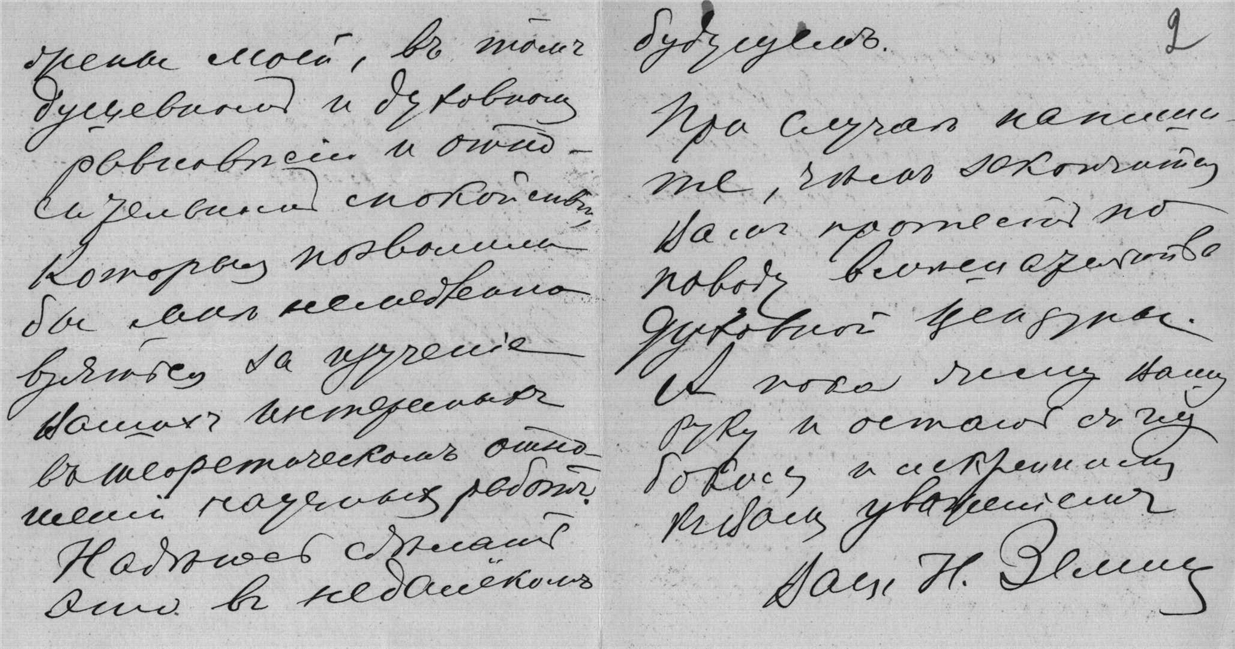 моей, въ томъ
душевномъ и духовномъ
равновѣсіи и отно-
сительномъ спокойствіи,
которыя позволили
бы мнѣ немедленно
взяться за изученіе
Вашихъ интересныхъ
въ теоретическомъ отно-
шеніи научныхъ работъ.
Надѣюсь сдѣлать
это въ недалёкомъ
2
будущемъ.
При случаѣ напиши-
те, чѣмъ закончится
Вашъ протестъ по
поводу вмѣшательства
духовной цензуры.
А пока жму Вашу
руку и остаюсь съ глу
бокимъ и искреннимъ
къ Вамъ уваженіемъ
Вашъ Н.